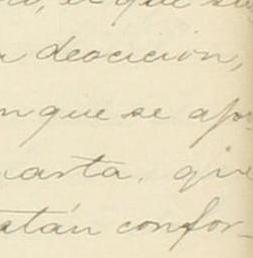 el que su
deocición,
que se apo
arta, que
atán confor-